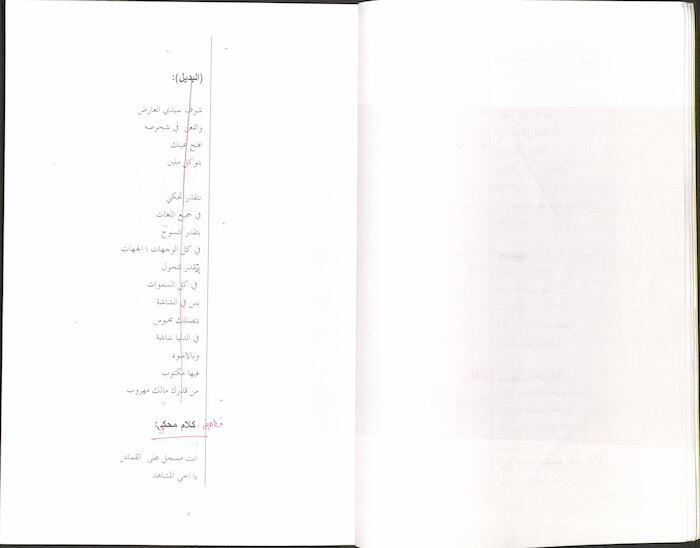 (البديل):
شوف سيدي العارض
واتمعن في شخوصه
افتح عينك
بتوكل ملبن
بتقدر تحكي
في جميع اللغات
بتقدر تتسوح
في كل الوجهات \ الجهات
بتقدر تتجول
في كل السموات
بس في الشاشة
بتضللك محبوس
في الدنيا شاشة
وبالاسود
فيها مكتوب
من قدرك مالك مهروب
كلام محكي:
انت مسجل على القماش
يا اخي المشاهد
٧